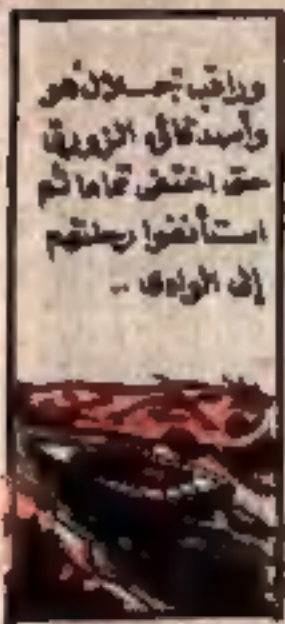 وراقب جلال هو
وأصدقائي الزورق
حتى اختفى تماما ثم
استأنفوا رحلتهم
إلى الوادى ..